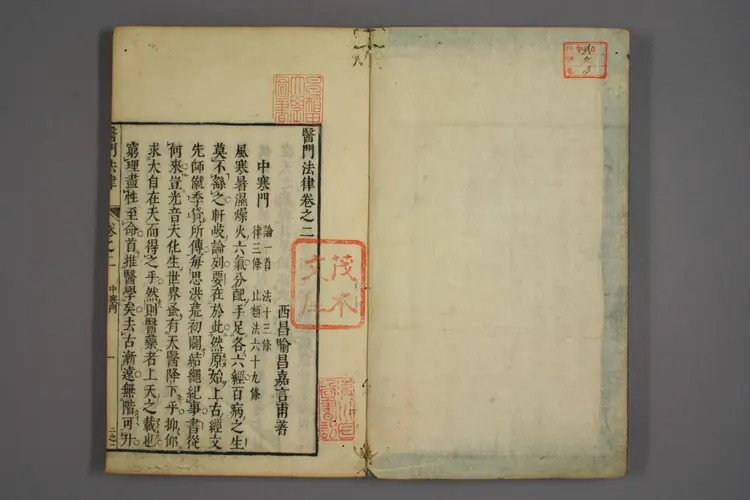 醫門法律卷之二
西昌喻昌嘉言甫著
中寒門 論一首 法十三條
律三條 比類法六十九條
風寒暑濕燥火六氣分配手足各六經百病之生
莫不繇之軒岐論列要在於此然原始上古經文
先師僦季貸所傳每思洪荒初闢結繩紀事書從
何來豈光音天化生世界蚤有天醫降下乎抑仰
求大自在天而得之乎然則醫藥者上天之載也
窮理盡性至命首推醫學矣去古漸遠無階可升
醫門法律
卷之二
中寒門
一
二之一
茂木
文庫